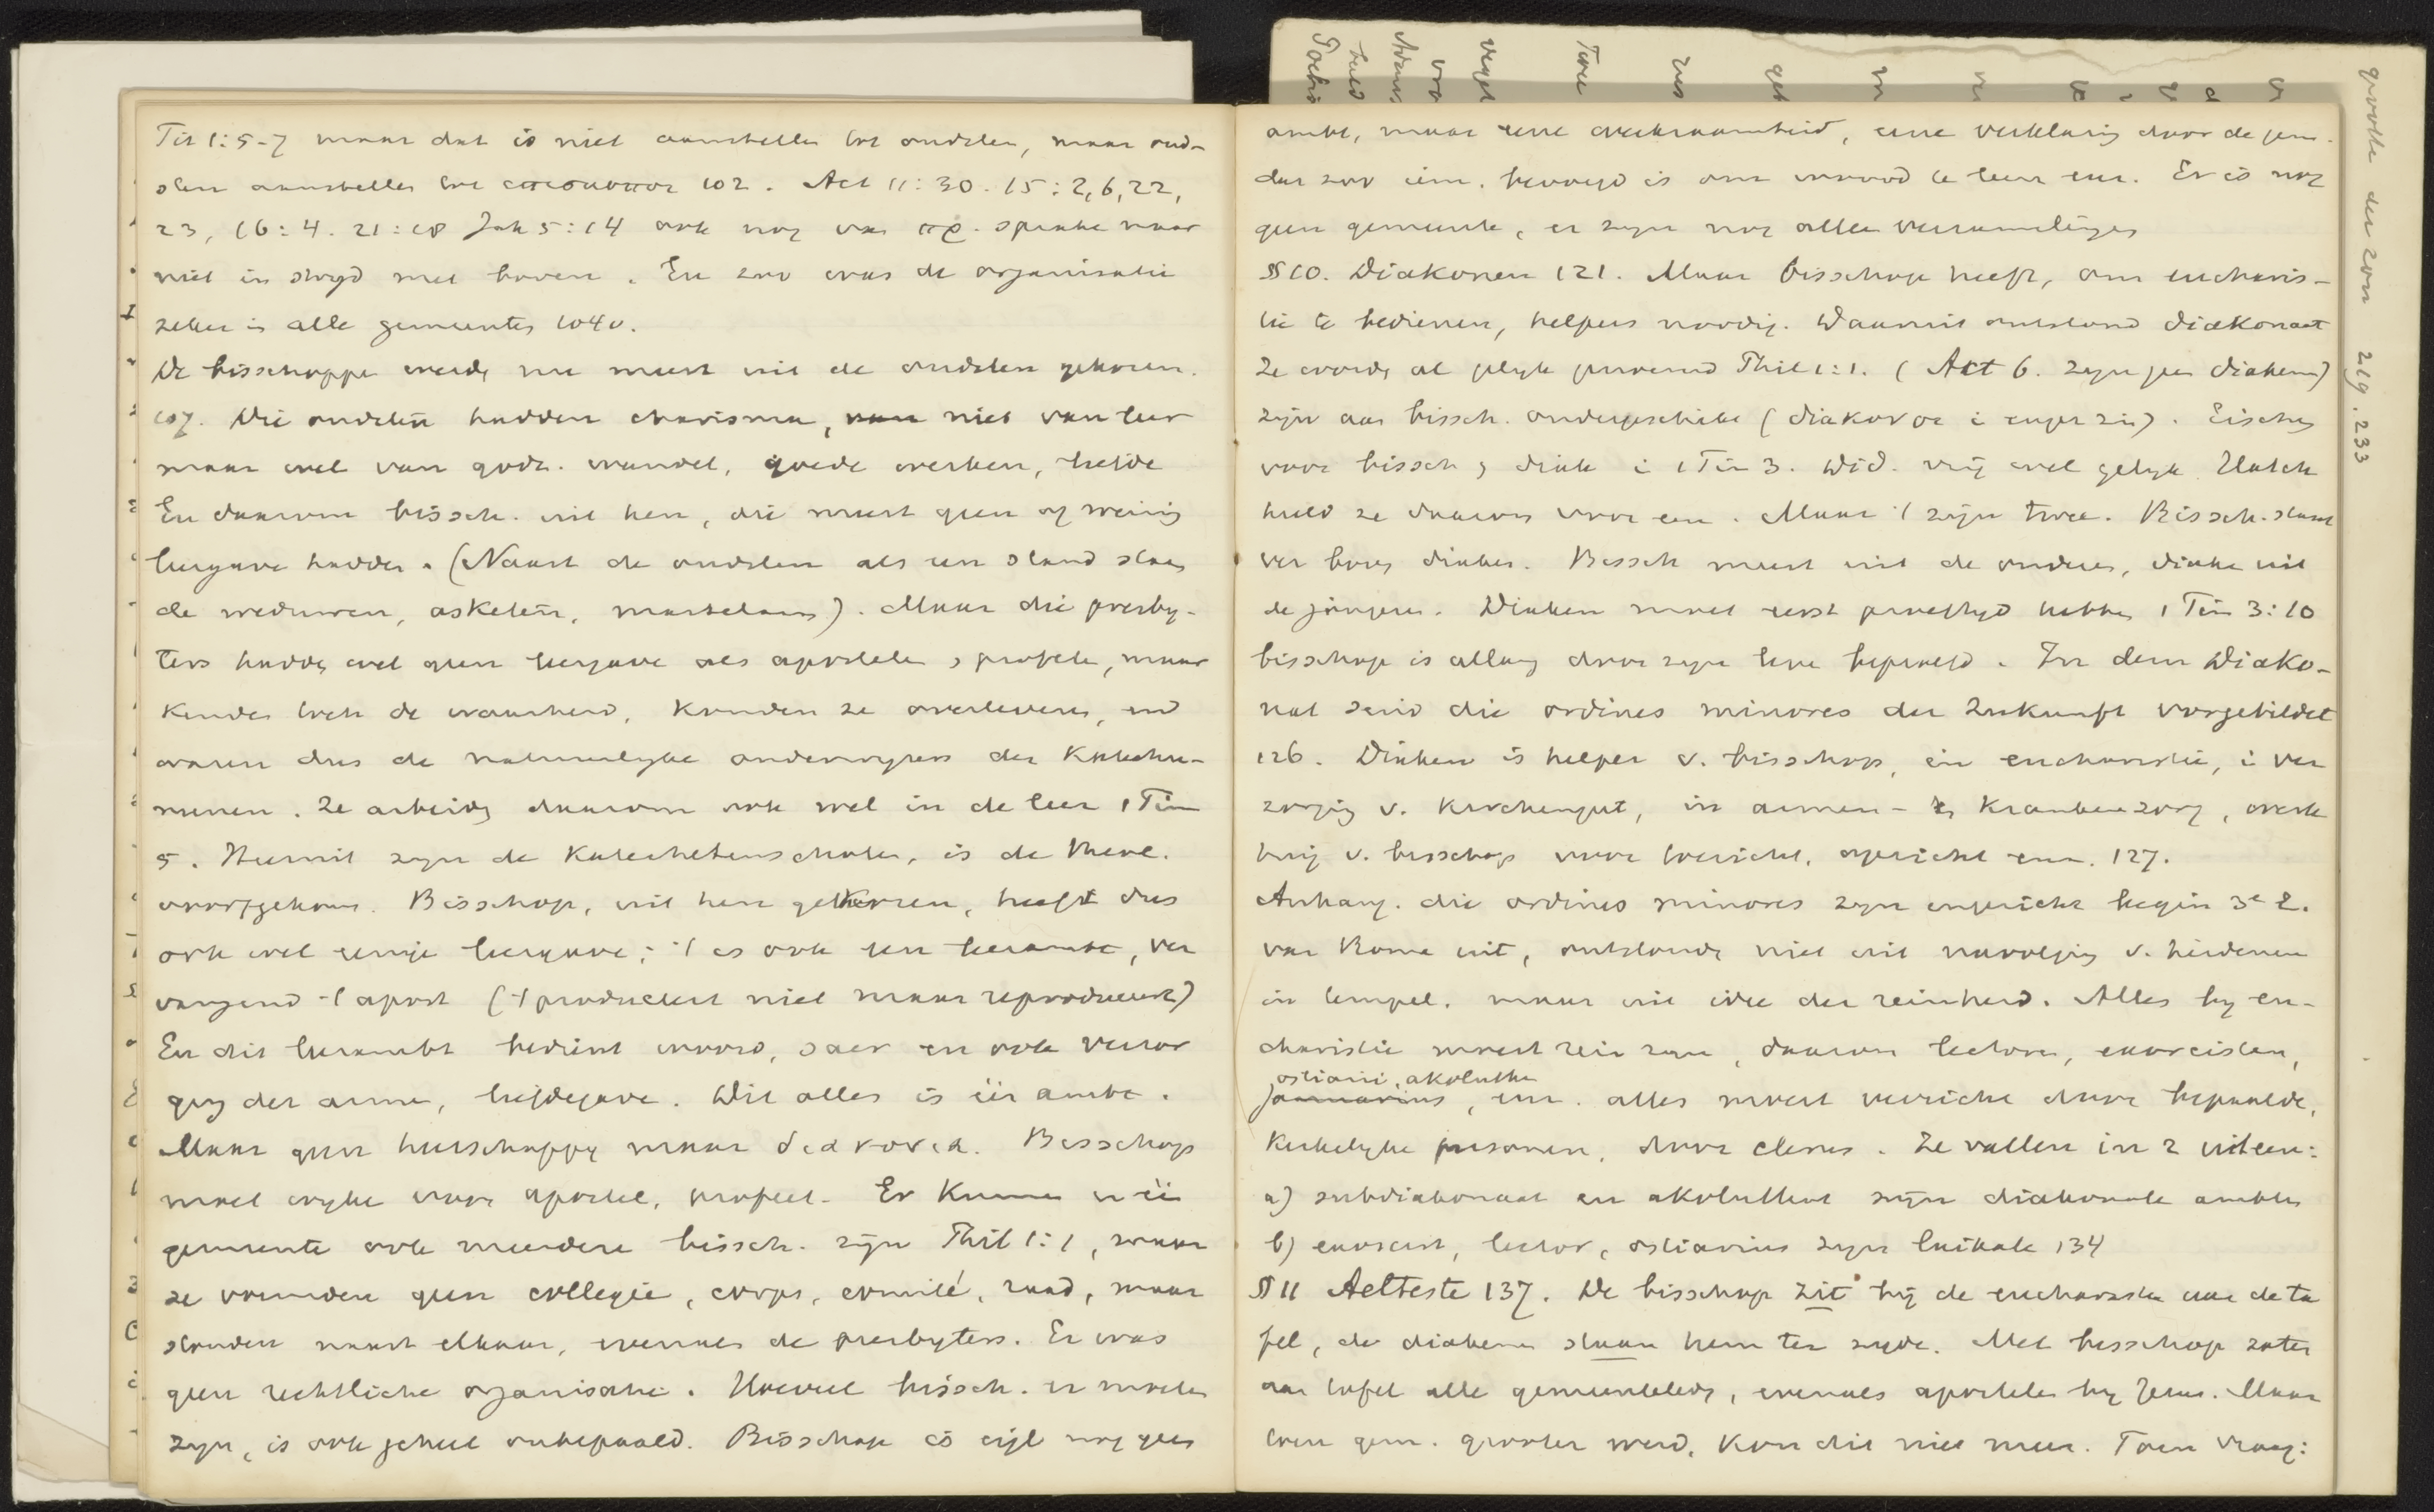 Tit 1:5-7 maar dat is niet aanstellen tot oudsten, maar oud-
sten aanstellen tot επισκοποι 102. Act 11:30. 15:2,6,22,
23, 16:4. 21:18 Jak 5:14 ook nog van πρ. sprake maar
niet in strijd met boven. En zoo was de organisatie
zeker in alle gemeenten 104v.
De bisschoppen werden nu meest uit de oudsten gekozen.
107. Die oudsten hadden charisma, niet van leer
maar wel van godz. wandel, goede werken, liefde
En daarom bissch. uit hen, die meest geen of weinig
leergave hadden. (Naast de oudsten als een stand staan
de weduwen, asketen, martelaars). Maar die presby-
ters hadden wel geen leergave als apostelen, profeten, maar
kenden toch de waarheid, konden ze overleveren, en
waren dus de natuurlijke onderwijzers der Katechu-
menen. Ze arbeidden daarom ook wel in de leer 1 Tim
5. Hieruit zijn de Katechetenscholen, is de theol.
voortgekomen. Bisschop, uit hen gekozen, heeft dus
ook wel eenige leergave; 't is ook een leerambt, ver
vangend 't apost ('t produceert niet maar reproduceert)
En dit leerambt bedient woord, sacr en ook verzor
ging der armen, liefdegave. Dit alles is één ambt.
Maar geen heerschappij maar διακονια. Bisschop
moet wijken voor apostel, profeet. Er kunnen in één
gemeente ook meerdere bissch. zijn Phil 1:1, maar
ze vormden geen collegie, corps, comité, raad, maar
stonden naast elkaar, evenals de presbyters. Er was
geen rechtliche organisatie. Hoeveel bissch. er moeten
zijn, is ook geheel onbepaald. Bisschop is eigl nog geen
ambt, maar eene werkzaamheid, eene verklaring door de gem.
dat zoo iem. bevoegd is om woord te leeren enz. Er is nog
geen gemeente, er zijn nog alleen verzamelingen
§ 10. Diakonen 121. Maar bisschop heeft, om eucharis-
tie te bedienen, helpers noodig. Daaruit ontstond diakonaat
Ze worden al gelijk genoemd Phil 1:1. (Act 6. zijn geen diakenen)
zijn aan bissch. ondergeschikt (διακονοι in enger zin). Eischen
voor bissch en diak in 1 Tim 3. Did. vrij wel gelijk Hatch
hield ze daarom voor een. Maar 't zijn twee. Bissch. staat
ver boven diaken. Bissch meest uit de ouderen, diaken uit
de jongeren. Diaken moet eerst proeftijd hebben 1 Tim 3:10
bisschop is allang door zijn leven beproefd. In dem Diako-
nat sind die ordines minores der Zukunft vorgebildet
126. Diaken is helper v. bisschop, in eucharistie, in ver
zorging v. Kirchengut, in armen- en krankenzorg, werk
tuig v. bisschop voor toezicht, opzicht enz. 127.
Anhang. die ordines minores zijn ingericht begin 3e E.
van Rome uit, ontstonden niet uit navolging v. heidenen
in tempel. maar uit idee der reinheid. Alles bij eu-
charistie moest rein zijn, daarom lectoren, exorcisten,
ostiarii, akoluthen
, enz. alles moest verricht door bepaalde,
kerkelijke personen, door clerus. Ze vallen in 2 uiteen:
a) subdiakonaat en akoluthen zijn diakonale ambten
b) exorcist, lector, ostiarius zijn laikale 134
§ 11 Aelteste 137. De bisschop zit bij de eucharistie aan de ta
fel, de diakenen staan hem ter zijde. Met bisschop zaten
aan tafel alle gemeenteleden, evenals apostelen bij Jezus. Maar
toen gem. grooter werd, kon dit niet meer. Toen vraag:
grootte der zon 219. 233